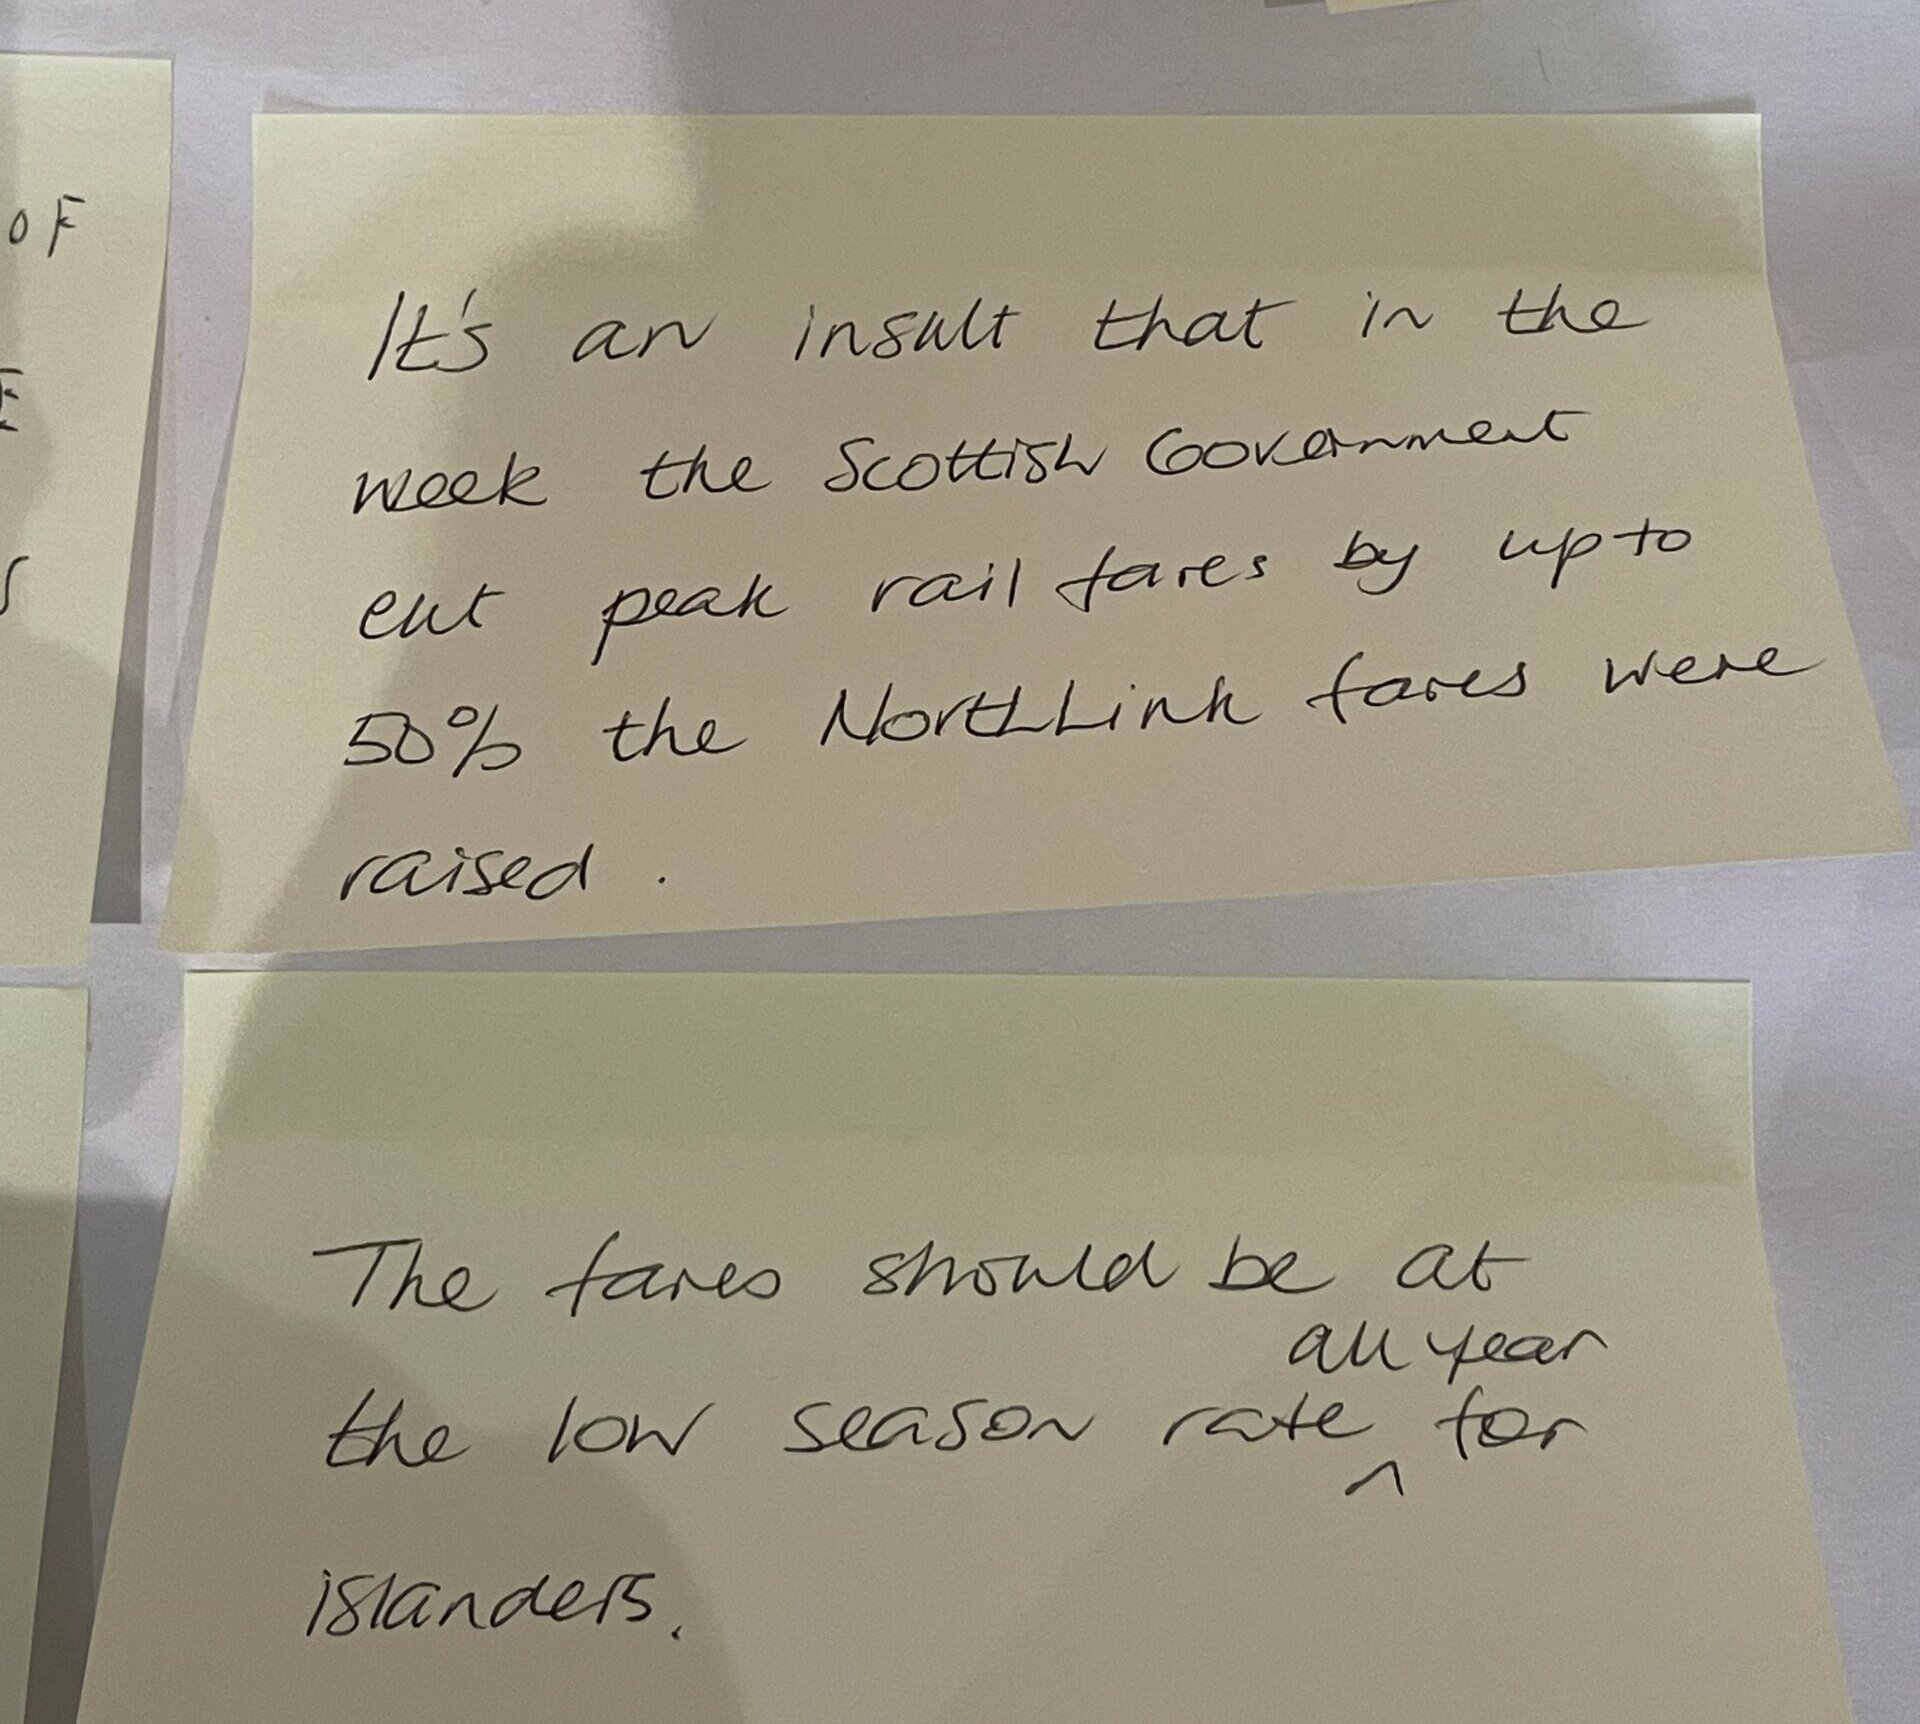 OF
It's an insult that in the
week the Scottish Government
cut peak rail fares by up to
50% the NorthLink fares were
raised.
The fares should be at
all year
the low season rate ^ for
islanders.